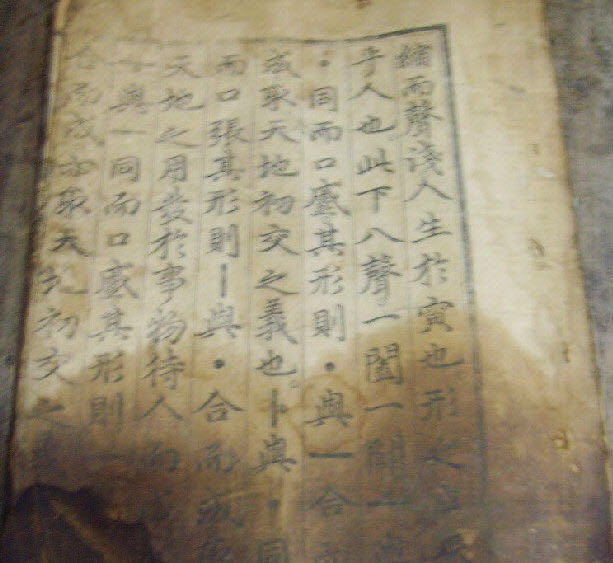 縮而聲淺人生於寅也形之立象
乎人也此下八聲一闔一闢ㅗ與
ㆍ同而口蹙其形則ㆍ與ㅡ合而
成取天地初交之義也ㅏ與ㆍ同
而口張其形則ㅣ與ㆍ合而成取
天地之用發於事物待人而
ㅜ與ㅡ同而口蹙其形則
合而成亦取天地初交之